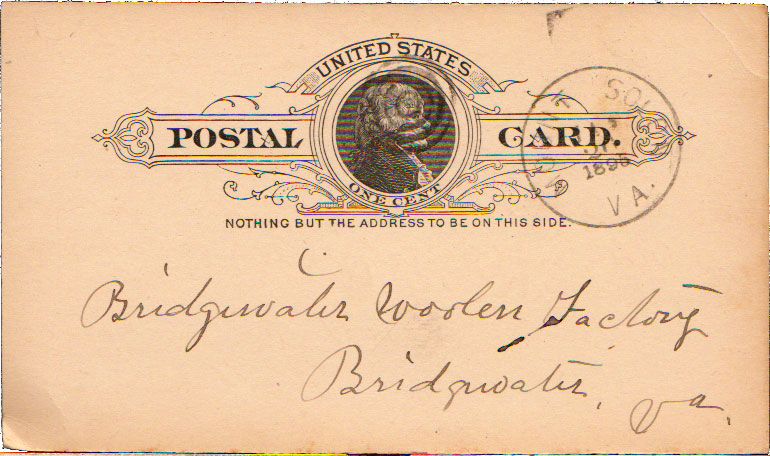 UNITED STATES
POSTAL CARD.
ONE CENT
NOTHING BUT THE ADDRESS TO BE ON THIS SIDE.
VA.
Bridgewater Woolen Factory
Bridgewater, Va.